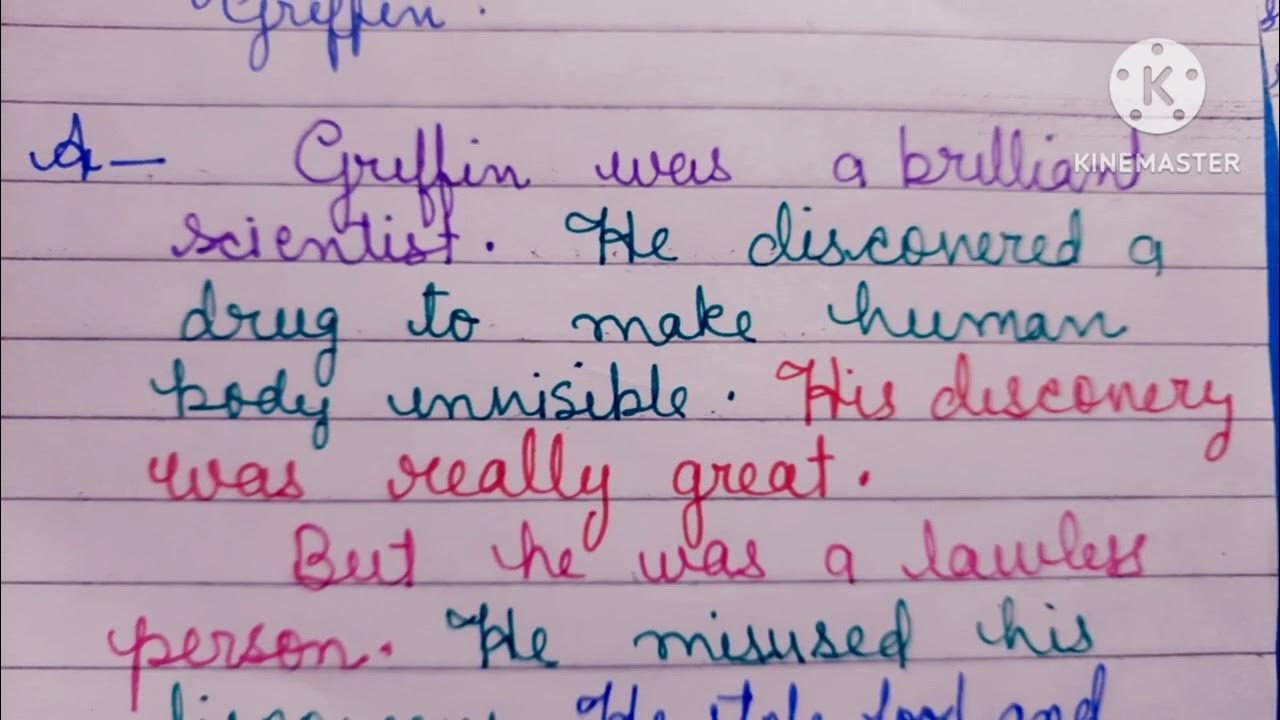 Griffin.
A- Griffin was a brilliant
scientist. He discovered a
drug to make human
body invisible. His discovery
was really great.
But he was a lawless
person. He misused his
discovery. He stole food and
KINEMASTER